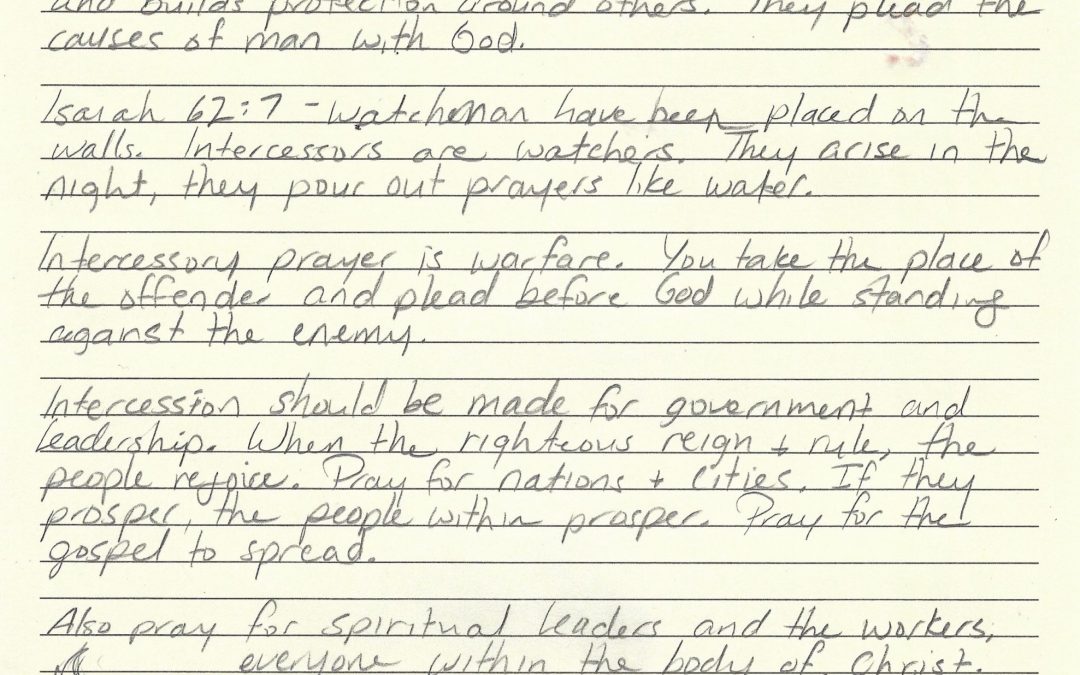 and builds protection around others. They plead the
causes of man with God.
Isaiah 62:7 - watchman have been placed on the
walls. Intercessors are watchers. They arise in the
night, they pour out prayers like water.
Intercessory prayer is warfare. You take the place of
the offender and plead before God while standing
against the enemy.
Intercession should be made for government and
leadership. When the righteous reign + rule, the
people rejoice. Pray for nations + cities. If they
prosper, the people within prosper. Pray for the
gospel to spread.
Also pray for spiritual leaders and the workers,
everyone within the body of Christ.